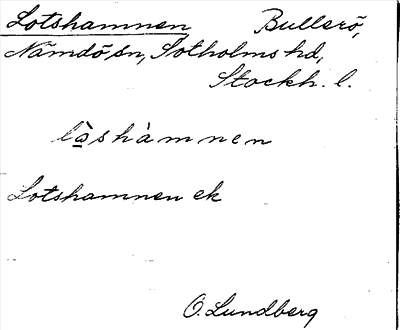 Lotshamnen Bullerö,
Nämdö sn, Sotholms hd,
Stockh. l.
lo̲̊̀shàmnen
Lotshamnen ek
O. Lundberg